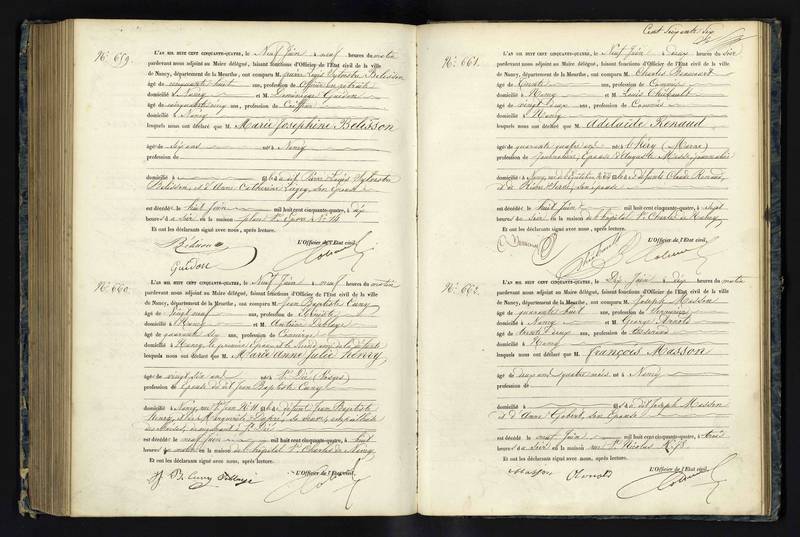 Nº 659.
L'AN MIL HUIT CENT CINQUANTE-QUATRE, le Neuf Juin à neuf heures du matin
pardevant nous adjoint au Maire délégué, faisant fonctions d'Officier de l'État civil de la ville
de Nancy, département de la Meurthe, ont comparu M. Jean Louis Sylvestre Bélisson
âgé de cinquante huit ans, profession de Officier en retraite
domicilié à Nancy et M. Dominique Guidon
âgé de cinquante cinq ans, profession de Coiffeur
domicilié à Nancy
lesquels nous ont déclaré que M. Marie Joséphine Belisson
âgée de six ans née à Nancy
profession de
domicilié à
Belisson, et d'Anne Catherine son épouse
est décédé le huit Juin mil huit cent cinquante-quatre, à dix
heures du soir, en la maison place St. Epvre Nº 14
Et ont les déclarants signé avec nous, après lecture.
L'Officier de l'État civil,
Guidon
Nº 660.
L'AN MIL HUIT CENT CINQUANTE-QUATRE, le Neuf Juin à neuf heures du matin
pardevant nous adjoint au Maire délégué, faisant fonctions d'Officier de l'État civil de la ville
de Nancy, département de la Meurthe, ont comparu M. Jean Baptiste Cuny
âgé de vingt neuf ans, profession de
domicilié à Nancy et M. Antoine
âgé de quarante six ans, profession de Concierge
domicilié à Nancy, le premier Epoux et le second ami de la défunte
lesquels nous ont déclaré que M. Marie Anne Julie Henry
âgée de vingt six ans née à St. Dié (Vosges)
profession de Epouse du dit Jean Baptiste Cuny
domicilié à Nancy, rue St. Jean Nº 11 fille de défunt Jean Baptiste
Henry, et de Marguerite
à St. Dié
est décédé le neuf Juin mil huit cent cinquante-quatre, à huit
heures du matin en la maison de l'hôpital St. Charles de Nancy
Et ont les déclarants signé avec nous, après lecture.
L'Officier de l'État civil,
J. B. Cuny
Cent Soixante Six
Nº 661.
L'AN MIL HUIT CENT CINQUANTE-QUATRE, le Neuf Juin à deux heures du soir
pardevant nous adjoint au Maire délégué, faisant fonctions d'Officier de l'État civil de la ville
de Nancy, département de la Meurthe, ont comparu M. Charles
âgé de trente ans, profession de Commis
domicilié à Nancy et M. Louis Thiébault
âgé de vingt deux ans, profession de Commis
domicilié à Nancy
lesquels nous ont déclaré que M. Adelaïde Renaud
âgée de quarante quatre ans née à Thiéry (Marne)
profession de Journalière, Epouse d'Auguste Masson, journalier
domicilié à Nancy, fille de défunts Claude Renaud,
et de son épouse
est décédé le huit Juin mil huit cent cinquante-quatre, à sept
heures du soir en la maison de l'hôpital St. Charles de Nancy
Et ont les déclarants signé avec nous, après lecture.
L'Officier de l'État civil,
Thiébault
Nº 662.
L'AN MIL HUIT CENT CINQUANTE-QUATRE, le Dix Juin à dix heures du matin
pardevant nous adjoint au Maire délégué, faisant fonctions d'Officier de l'État civil de la ville
de Nancy, département de la Meurthe, ont comparu M. Joseph Masson
âgé de quarante huit ans, profession de Serrurier
domicilié à Nancy et M. George Arnold
âgé de trente deux ans, profession de
domicilié à Nancy
lesquels nous ont déclaré que M. François Masson
âgé de deux ans quatre mois né à Nancy
profession de
domicilié à fils du dit Joseph Masson
et d'Anne Gobert, son Epouse
est décédé le neuf Juin mil huit cent cinquante-quatre, à trois
heures du soir en la maison rue St. Nicolas
Et ont les déclarants signé avec nous, après lecture.
L'Officier de l'État civil,
Masson Arnold